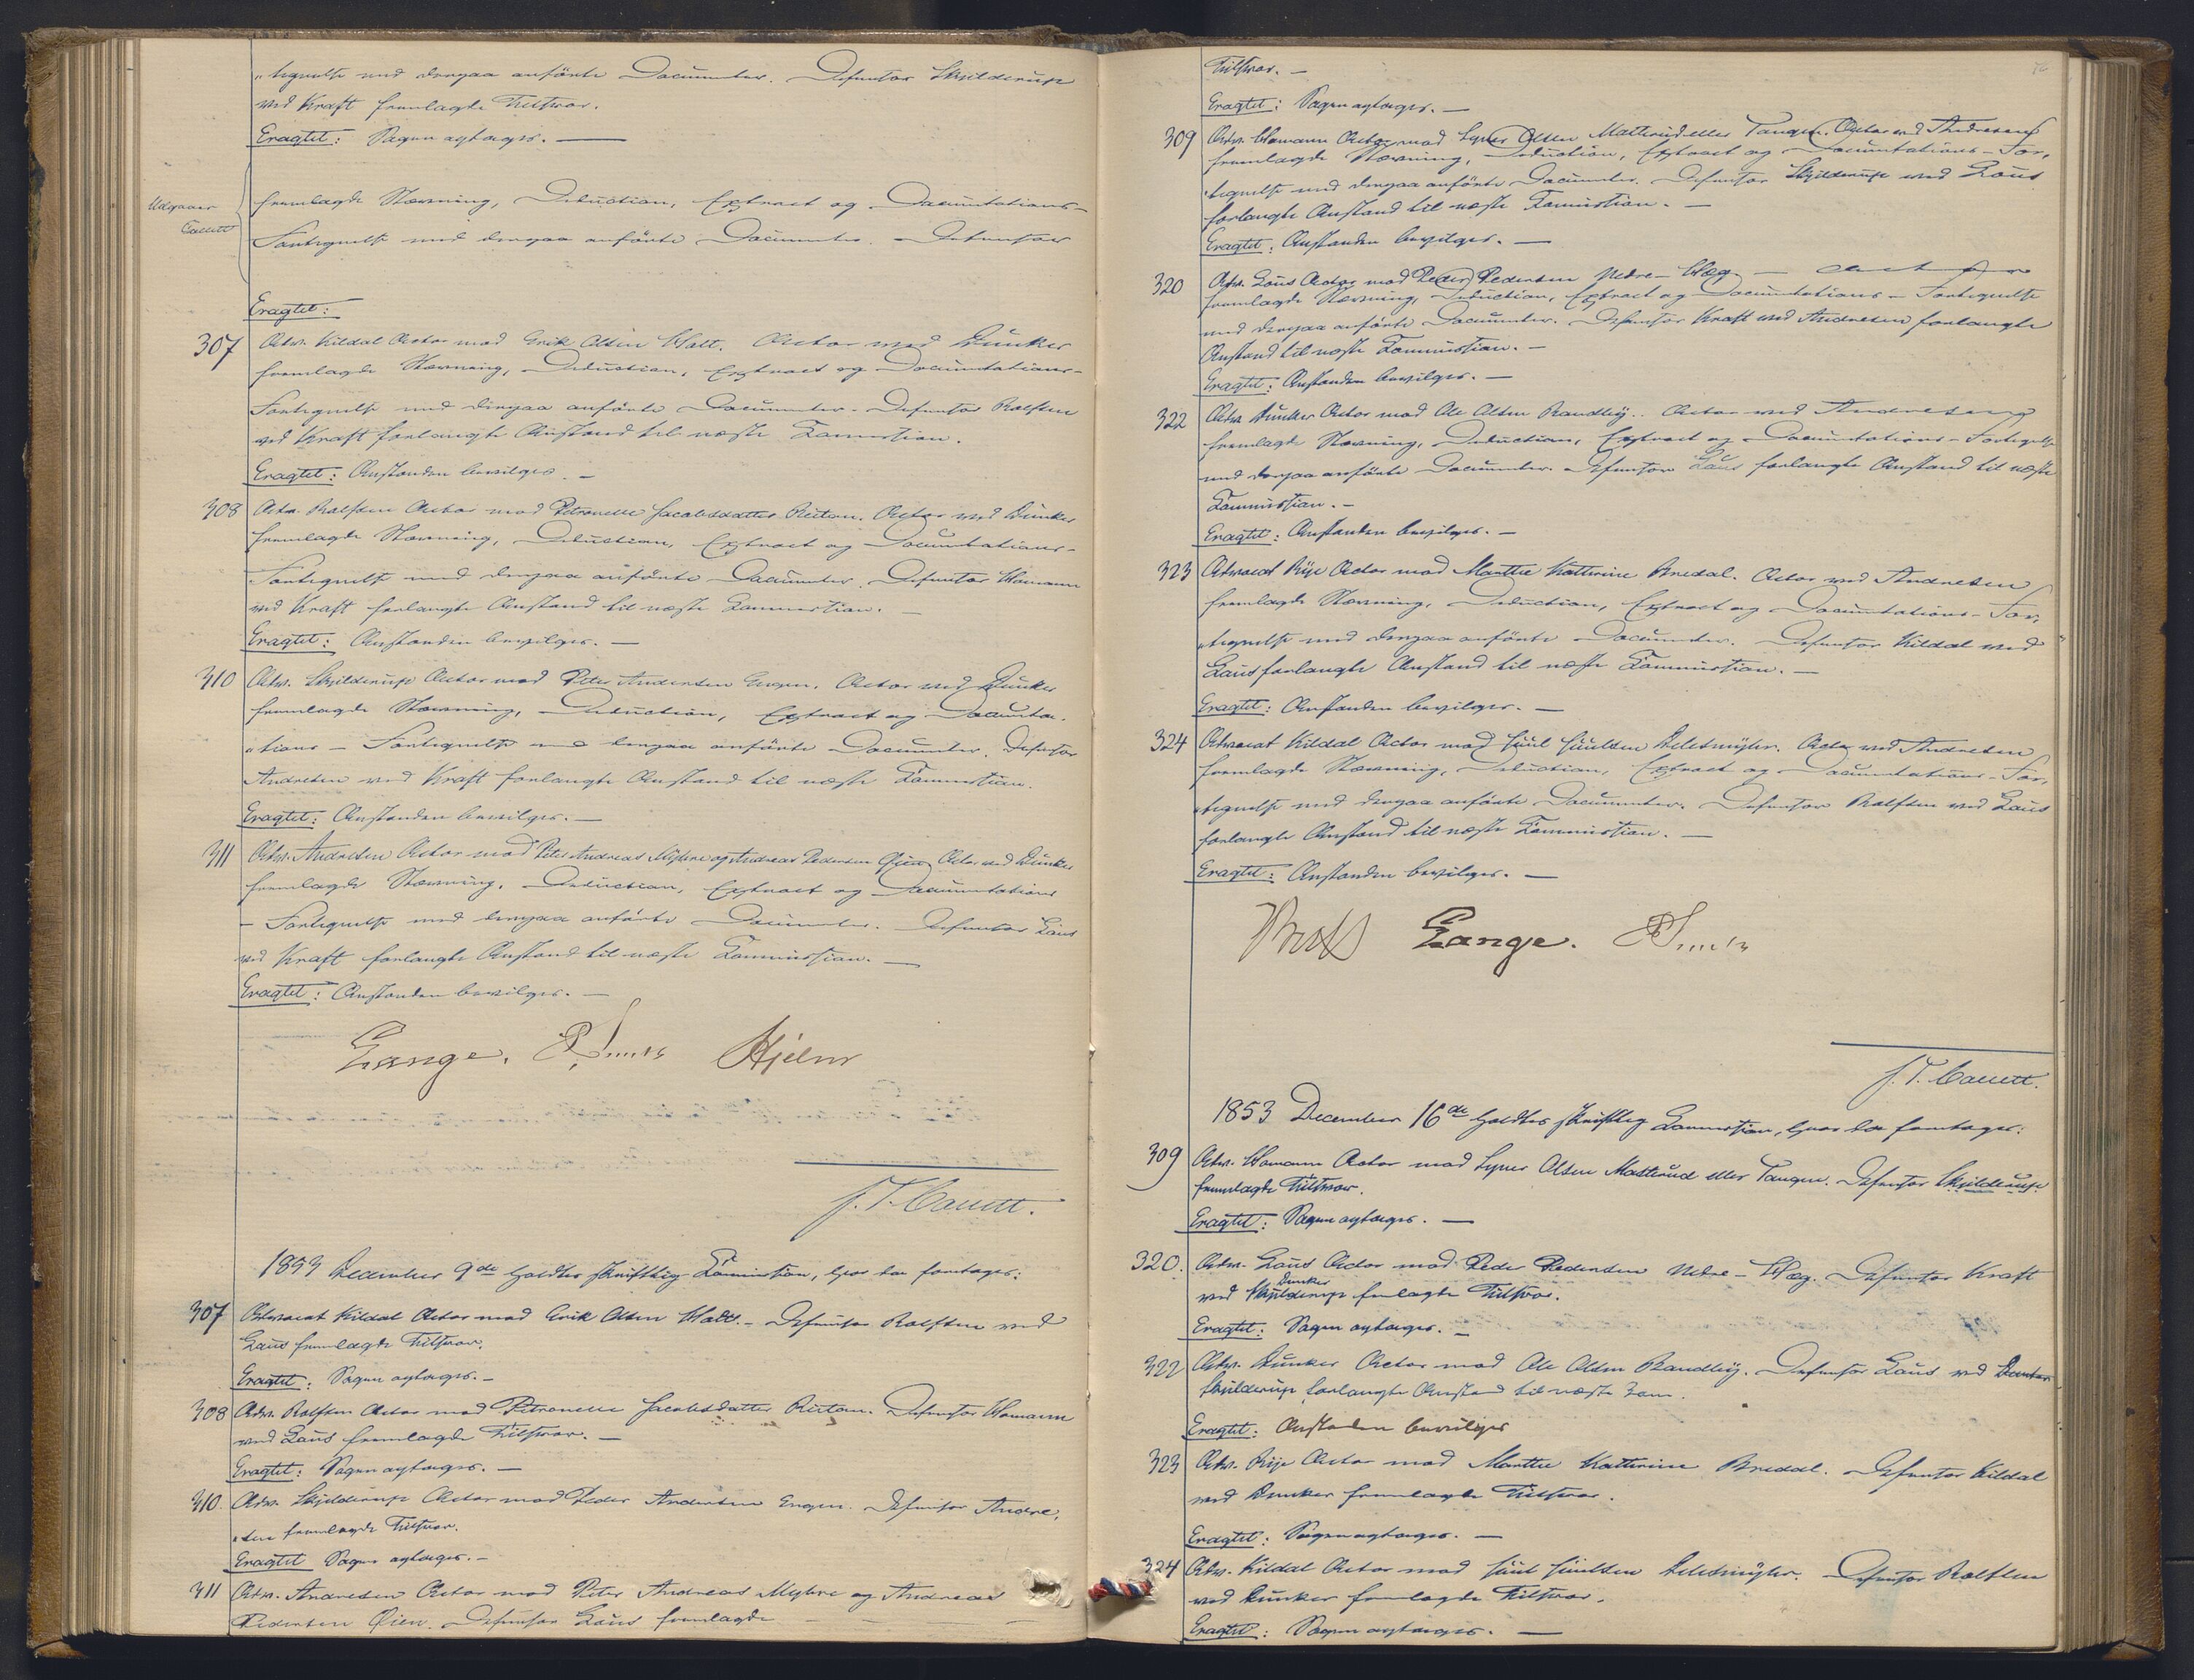 "tegnelse med derpaa anførte Documenter. Defensor Skjilderup
ved Kraft fremlagde Tilsvar.
Eragtet: Sagen optages. —
Udgaaer
Cauett
fremlagde Stævning, Deduction, Extract og Documentations-
Fortegnelse med derpaa anførte Documenter. Defensor
Eragtet:
307 Adv. Kildal Actor mod Erik Olsen Wall. Actor ved Dunker
fremlagde Stævning, Deduction, Extract og Documentations-
Fortegnelse med derpaa anførte Documenter. Defensor Rolfsen
ved Kraft forlangte Anstand til næste Commission.
Eragtet: Anstanden bevilges. —
308 Adv. Rolfsen Actor mod Petronelle Jacobsdatter Reitan. Actor ved Dunker
fremlagde Stævning, Deduction, Extract og Documentations-
Fortegnelse med derpaa anførte Documenter. Defensor Homann
ved Kraft forlangte Anstand til næste Commission. —
Eragtet: Anstanden bevilges. —
310 Adv. Skjilderup Actor mod Peter Andersen Engen. Actor ved Dunker
fremlagde Stævning, Deduction, Extract og Documenta-
"tions - Fortegnelse med derpaa anførte Documenter. Defensor
Andresen ved Kraft forlangte Anstand til næste Commission.
Eragtet: Anstanden bevilges. —
311 Adv. Andresen Actor mod Peter Andreas Myhre og Andreas Pedersen Øien. Actor ved Dunker
fremlagde Stævning, Deduction, Extract og Documentations
- Fortegnelse med derpaa anførte Documenter. Defensor Laus
ved Kraft forlangte Anstand til næste Commission. —
Eragtet: Anstanden bevilges. —
Lange. Hjelm
J. T. Cauett.
1853 December 9de holdtes skriftlig Commission, hvor da foretoges:
307 Advocat Kildal Actor mod Erik Olsen Wall. - Defensor Rolfsen ved
Laus fremlagde Tilsvar.
Eragtet: Sagen optages. -
308 Adv. Rolfsen Actor mod Petronelle Jacobsdatter Reitan. Defensor Homann
ved Laus fremlagde Tilsvar. —
Eragtet: Sagen optages. —
310. Adv. Skjilderup Actor mod Peder Andersen Engen. Defensor Andre,
"sen fremlagde Tilsvar.
Eragtet Sagen optages. -
311 Adv. Andresen Actor mod Peter Andreas Myhre og Andreas
Pedersen Øien. Defensor Laus fremlagde
Tilsvar. —
Eragtet: Sagen optages. —
309 Adv. Homann Actor mod Syver Olsen Matterud eller Tangen. Actor ved Andresen
fremlagde Stævning, Deduction, Extract og Documentations-For,
"tegnelse med derpaa anførte Documenter. Defensor Skjilderup ved Laus
forlangte Anstand til næste Commission. —
Eragtet: Anstanden bevilges. —
320 Adv. Laus Actor mod Peder Pedersen Nedre-Hæg. —
fremlagde Stævning, Deduction, Extract og Documentations-Fortegnelse
med derpaa anførte Documenter. Defensor Kraft ved Andresen forlangte
Anstand til næste Commission. —
Eragtet: Anstanden bevilges. —
322 Adv. Dunker Actor mod Ole Olsen Brandby. Actor ved Andresen
fremlagde Stævning, Deduction, Extract og Documentations-Fortegnelse
med derpaa anførte Documenter. Defensor Laus forlangte Anstand til næste
Commission. -
Eragtet: Anstanden bevilges. —
323 Advocat Rije Actor mod Marthe Kathrine Bredal. Actor ved Andresen
fremlagde Stævning, Deduction, Extract og Documentations-For,
"tegnelse med derpaa anførte Documenter. Defensor Kildal ved
Laus forlangte Anstand til næste Commission. —
Eragtet: Anstanden bevilges. —
324 Advocat Kildal Actor mod Juul Juulsen. Actor ved Andresen
fremlagde Stævning, Deduction, Extract og Documentations-For,
"tegnelse med derpaa anførte Documenter. Defensor Rolfsen ved Laus
forlangte Anstand til næste Commission. —
Eragtet: Anstanden bevilges. —
Lange.
J. T. Cauett.
1853 December 16de holdtes skriftlig Commission, hvor da foretoges:
309 Adv. Homann Actor mod Syver Olsen Matterud eller Tangen. Defensor Skjilderup
fremlagde Tilsvar.
Eragtet: Sagen optages. —
320. Adv. Laus Actor mod Peder Pedersen Nedre-Hæg. Defensor Kraft
Dunker
ved Skjilderup fremlagde Tilsvar.
Eragtet: Sagen optages. —
322 Adv. Dunker Actor mod Ole Olsen Brandby. Defensor Laus ved Dunker
Skjilderup forlangte Anstand til næste Com.
Eragtet: Anstanden bevilges
323 Adv. Rije Actor mod Marthe Kathrine Bredal. Defensor Kildal
ved Dunker fremlagde Tilsvar.
Eragtet: Sagen optages. —
324 Adv. Kildal Actor mod Juul Juulsen. Defensor Rolfsen
ved Dunker fremlagde Tilsvar.
Eragtet: Sagen optages. —